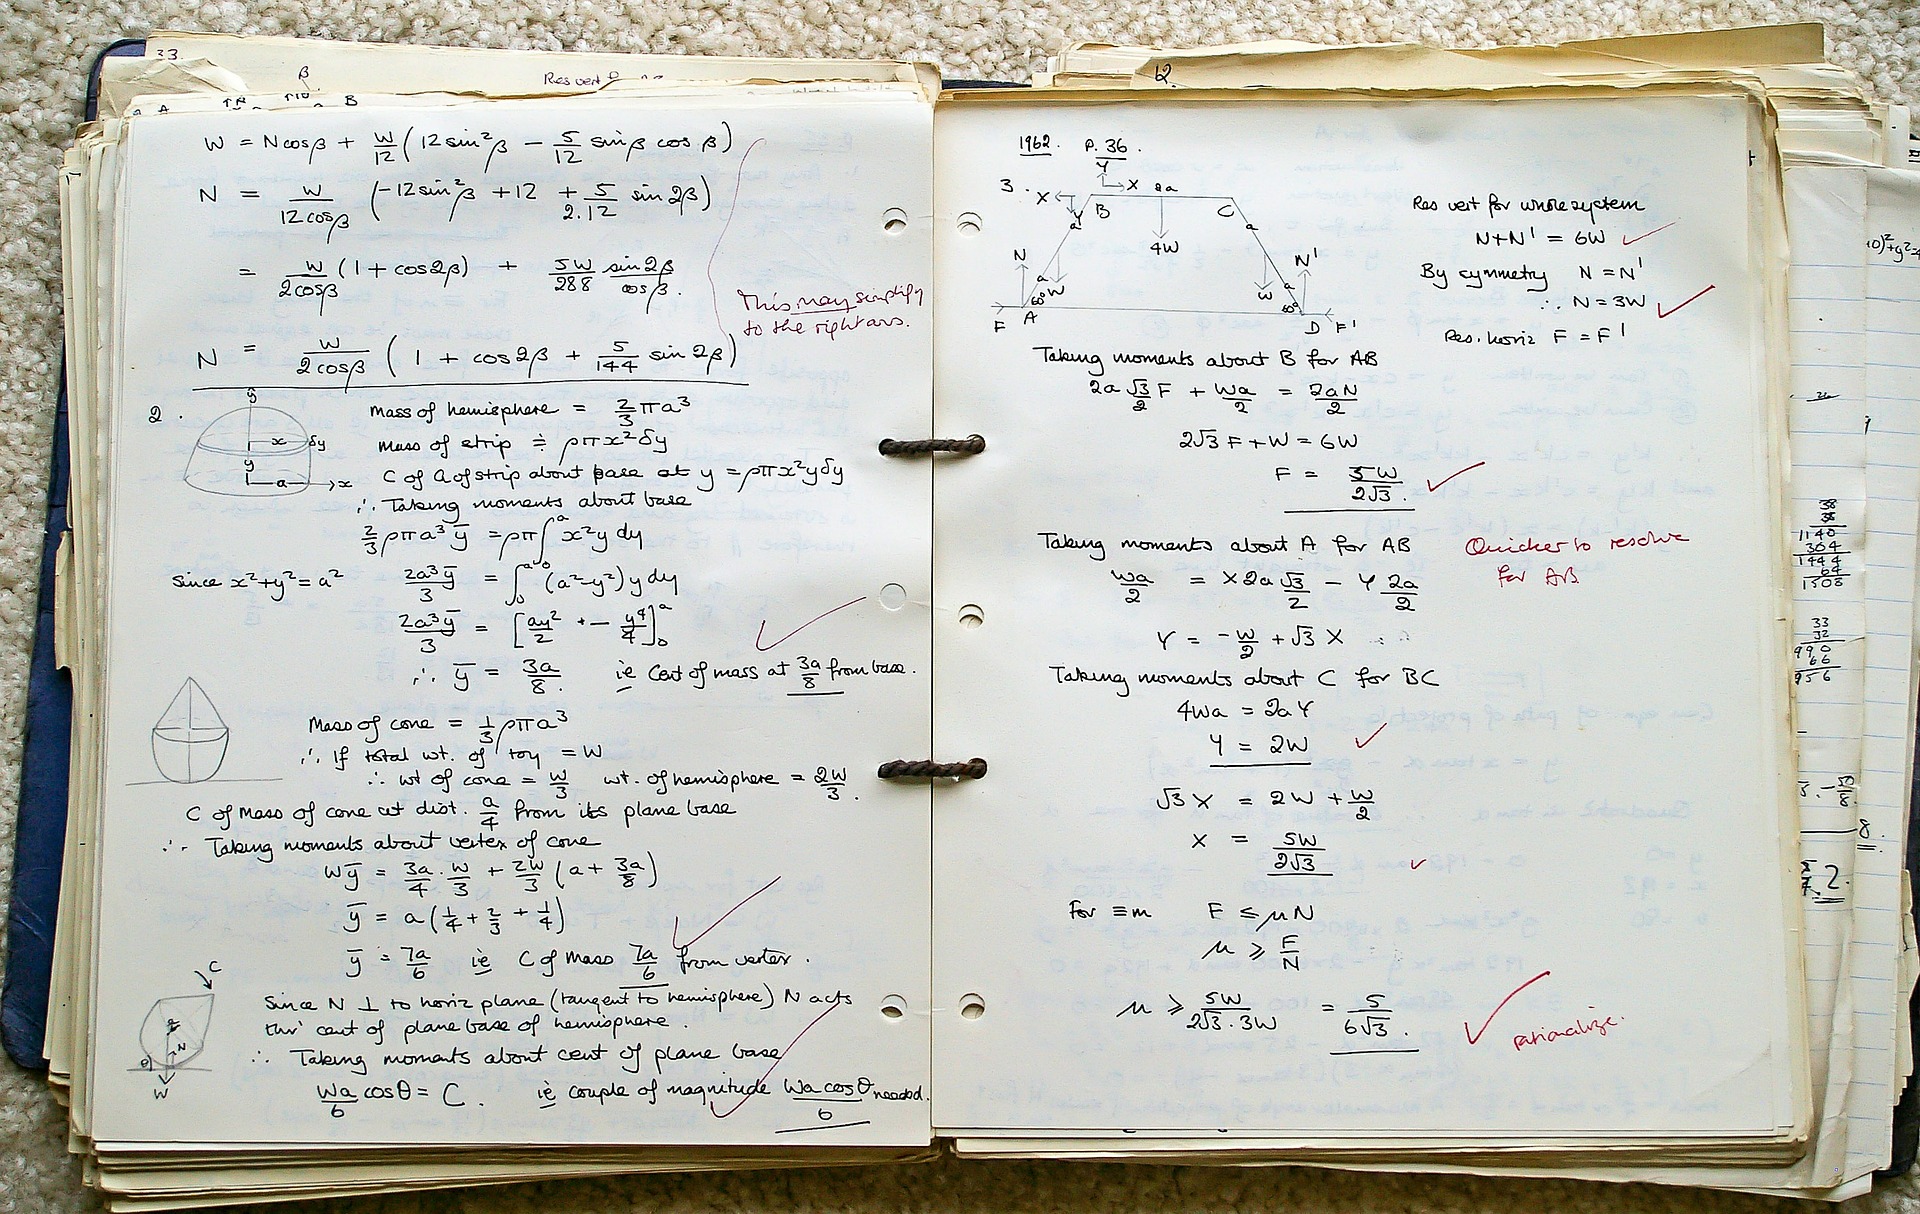 33.
β
Res vert
A
B
W = N cosβ + W/12 (12 sin²β − 5/12 sinβ cos β)
N = W/12cosβ (−12sin²β + 12 + 5/2.12 sin 2β)
= W/2cosβ (1 + cos2β) + 5W/288 sin2β/cosβ.
This may simplify
to the right ans.
N = W/2cosβ (1 + cos2β + 5/144 sin 2β)
2.
y
x
δy
y
a
x
Mass of hemisphere = 2/3 πa³
Mass of strip ≑ ρπx²δy
C of G of strip about base at y = ρπx²yδy
∴ Taking moments about base
2/3 ρπa³ȳ = ρπ∫ᵃ₀ x²y dy
Since x²+y²=a² 2a³ȳ/3 = ∫ᵃ₀ (a²−y²) y dy
2a³ȳ/3 = [ay²/2 − y⁴/4]ᵃ₀
∴ ȳ = 3a/8. ie Cent of mass at 3a/8 from base.
Mass of cone = 1/3 ρπa³
∴ If total wt. of toy = W
∴ wt of cone = W/3 wt. of hemisphere = 2W/3.
C of Mass of cone at dist. a/4 from its plane base
∴ Taking moments about vertex of cone
Wȳ = 3a/4 . W/3 + 2W/3 (a + 3a/8)
ȳ = a(1/4 + 2/3 + 1/4)
ȳ = 7a/6 ie C of Mass 7a/6 from vertex.
C
θ
N
W
Since N ⊥ to horiz plane (tangent to hemisphere) N acts
thr' cent of plane base of hemisphere.
∴ Taking moments about cent of plane base
Wa/6 cosθ = C. ie couple of magnitude Wa cosθ/6 needed.
12
1962. P. 36.
3.
Y
X
X
2a
Y
B
C
a
a
4W
N
N'
a
W
W
a
60°
60°
F
A
D
F'
Res vert for whole system
N+N' = 6W
By symmetry N = N'
∴ N = 3W
Res. horiz F = F'
Taking moments about B for AB
2a √3/2 F + Wa/2 = 2aN/2
2√3 F + W = 6W
F = 5W/2√3.
Taking moments about A for AB
Quicker to resolve
for AB
Wa/2 = X 2a √3/2 − Y 2a/2
Y = −W/2 + √3 X
Taking moments about C for BC
4Wa = 2aY
Y = 2W
√3 X = 2W + W/2
X = 5W/2√3
For ≡m F ≤ μN
μ ≥ F/N
μ ≥ 5W/2√3 . 3W = 5/6√3.
rationalize.
38
38
1140
304
1444
64
1508
33
32
990
66
956
8.
2.